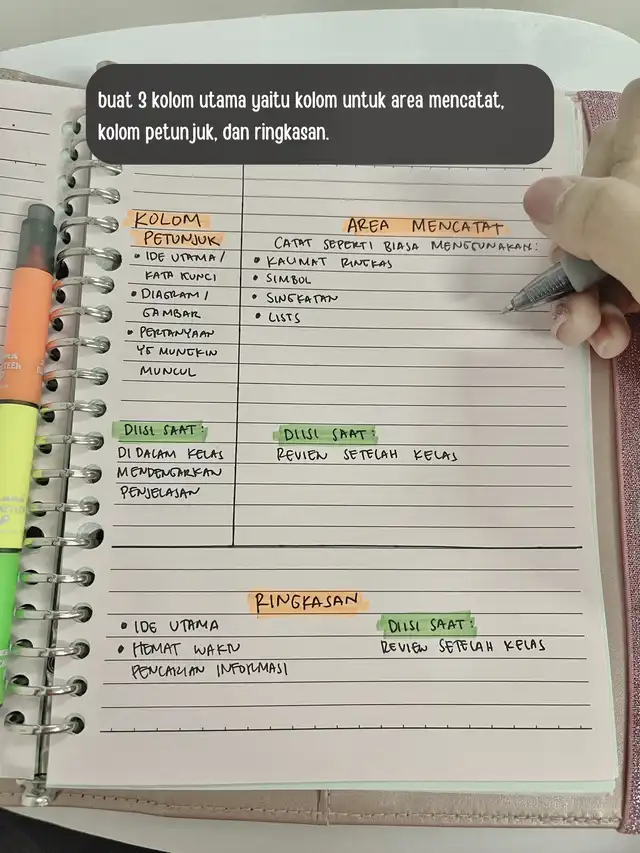 buat 3 kolom utama yaitu kolom untuk area mencatat,
kolom petunjuk, dan ringkasan.
KOLOM
PETUNJUK
• IDE UTAMA /
KATA KUNCI
• DIAGRAM /
GAMBAR
• PERTANYAAN
YG MUNGKIN
MUNCUL
DIISI SAAT:
DI DALAM KELAS
MENDENGARKAN
PENJELASAN
AREA MENCATAT
CATAT SEPERTI BIASA MENGGUNAKAN:
• KALIMAT RINGKAS
• SIMBOL
• SINGKATAN
• LISTS
DIISI SAAT:
REVIEW SETELAH KELAS
RINGKASAN
• IDE UTAMA
• HEMAT WAKTU
PENCARIAN INFORMASI
DIISI SAAT:
REVIEW SETELAH KELAS